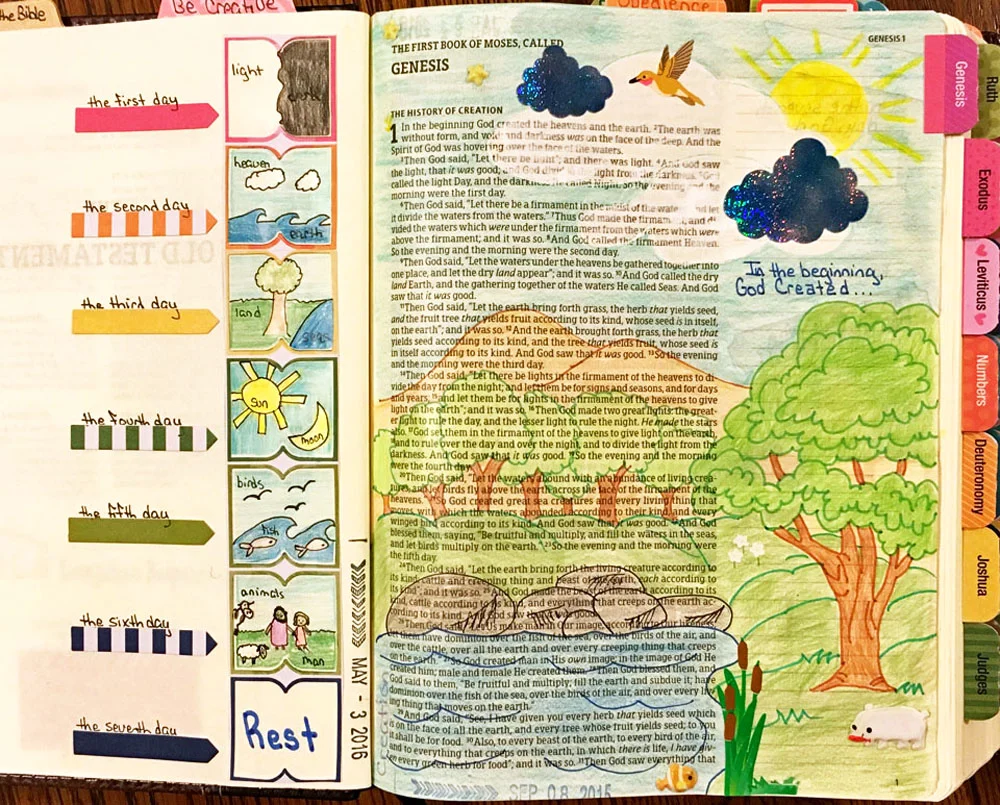 the Bible
Be Creative
Obedience
the first day
light
the second day
heaven
earth
the third day
land
seas
the fourth day
Sun
moon
the fifth day
birds
fish
the sixth day
animals
man
the seventh day
Rest
OLD TESTAMENT
MAY - 3 2016
GENESIS 1
THE FIRST BOOK OF MOSES, CALLED
GENESIS
THE HISTORY OF CREATION
1 In the beginning God created the heavens and the earth. 2The earth was
without form, and void; and darkness was on the face of the deep. And the
Spirit of God was hovering over the face of the waters.
3Then God said, "Let there be light"; and there was light. 4And God saw
the light, that it was good; and God divided the light from the darkness. 5God
called the light Day, and the darkness He called Night. So the evening and the
morning were the first day.
6Then God said, "Let there be a firmament in the midst of the waters, and let
it divide the waters from the waters." 7Thus God made the firmament, and di-
vided the waters which were under the firmament from the waters which were
above the firmament; and it was so. 8And God called the firmament Heaven.
So the evening and the morning were the second day.
9Then God said, "Let the waters under the heavens be gathered together into
one place, and let the dry land appear"; and it was so. 10And God called the dry
land Earth, and the gathering together of the waters He called Seas. And God
saw that it was good.
11Then God said, "Let the earth bring forth grass, the herb that yields seed,
and the fruit tree that yields fruit according to its kind, whose seed is in itself,
on the earth"; and it was so. 12And the earth brought forth grass, the herb that
yields seed according to its kind, and the tree that yields fruit, whose seed is
in itself according to its kind. And God saw that it was good. 13So the evening
and the morning were the third day.
14Then God said, "Let there be lights in the firmament of the heavens to di-
vide the day from the night; and let them be for signs and seasons, and for days
and years; 15and let them be for lights in the firmament of the heavens to give
light on the earth"; and it was so. 16Then God made two great lights: the great-
er light to rule the day, and the lesser light to rule the night. He made the stars
also. 17God set them in the firmament of the heavens to give light on the earth,
18and to rule over the day and over the night, and to divide the light from the
darkness. And God saw that it was good. 19So the evening and the morning
were the fourth day.
20Then God said, "Let the waters abound with an abundance of living crea-
tures, and let birds fly above the earth across the face of the firmament of the
heavens." 21So God created great sea creatures and every living thing that
moves, with which the waters abounded, according to their kind, and every
winged bird according to its kind. And God saw that it was good. 22And God
blessed them, saying, "Be fruitful and multiply, and fill the waters in the seas,
and let birds multiply on the earth." 23So the evening and the morning were
the fifth day.
24Then God said, "Let the earth bring forth the living creature according to
its kind: cattle and creeping thing and beast of the earth, each according to
its kind"; and it was so. 25And God made the beast of the earth according to its
kind, cattle according to its kind, and everything that creeps on the earth ac-
cording to its kind. And God saw that it was good.
26Then God said, "Let Us make man in Our image, according to Our likeness;
let them have dominion over the fish of the sea, over the birds of the air, and
over the cattle, over all the earth and over every creeping thing that creeps
on the earth." 27So God created man in His own image; in the image of God He
created him; male and female He created them. 28Then God blessed them, and
God said to them, "Be fruitful and multiply; fill the earth and subdue it; have
dominion over the fish of the sea, over the birds of the air, and over every liv-
ing thing that moves on the earth."
29And God said, "See, I have given you every herb that yields seed which
is on the face of all the earth, and every tree whose fruit yields seed; to you
it shall be for food. 30Also, to every beast of the earth, to every bird of the air,
and to everything that creeps on the earth, in which there is life, I have giv-
en every green herb for food"; and it was so. 31Then God saw everything that
In the beginning,
God Created...
SEP 08 2015
1
Genesis
Ruth
Exodus
Leviticus
Numbers
Deuteronomy
Joshua
Judges